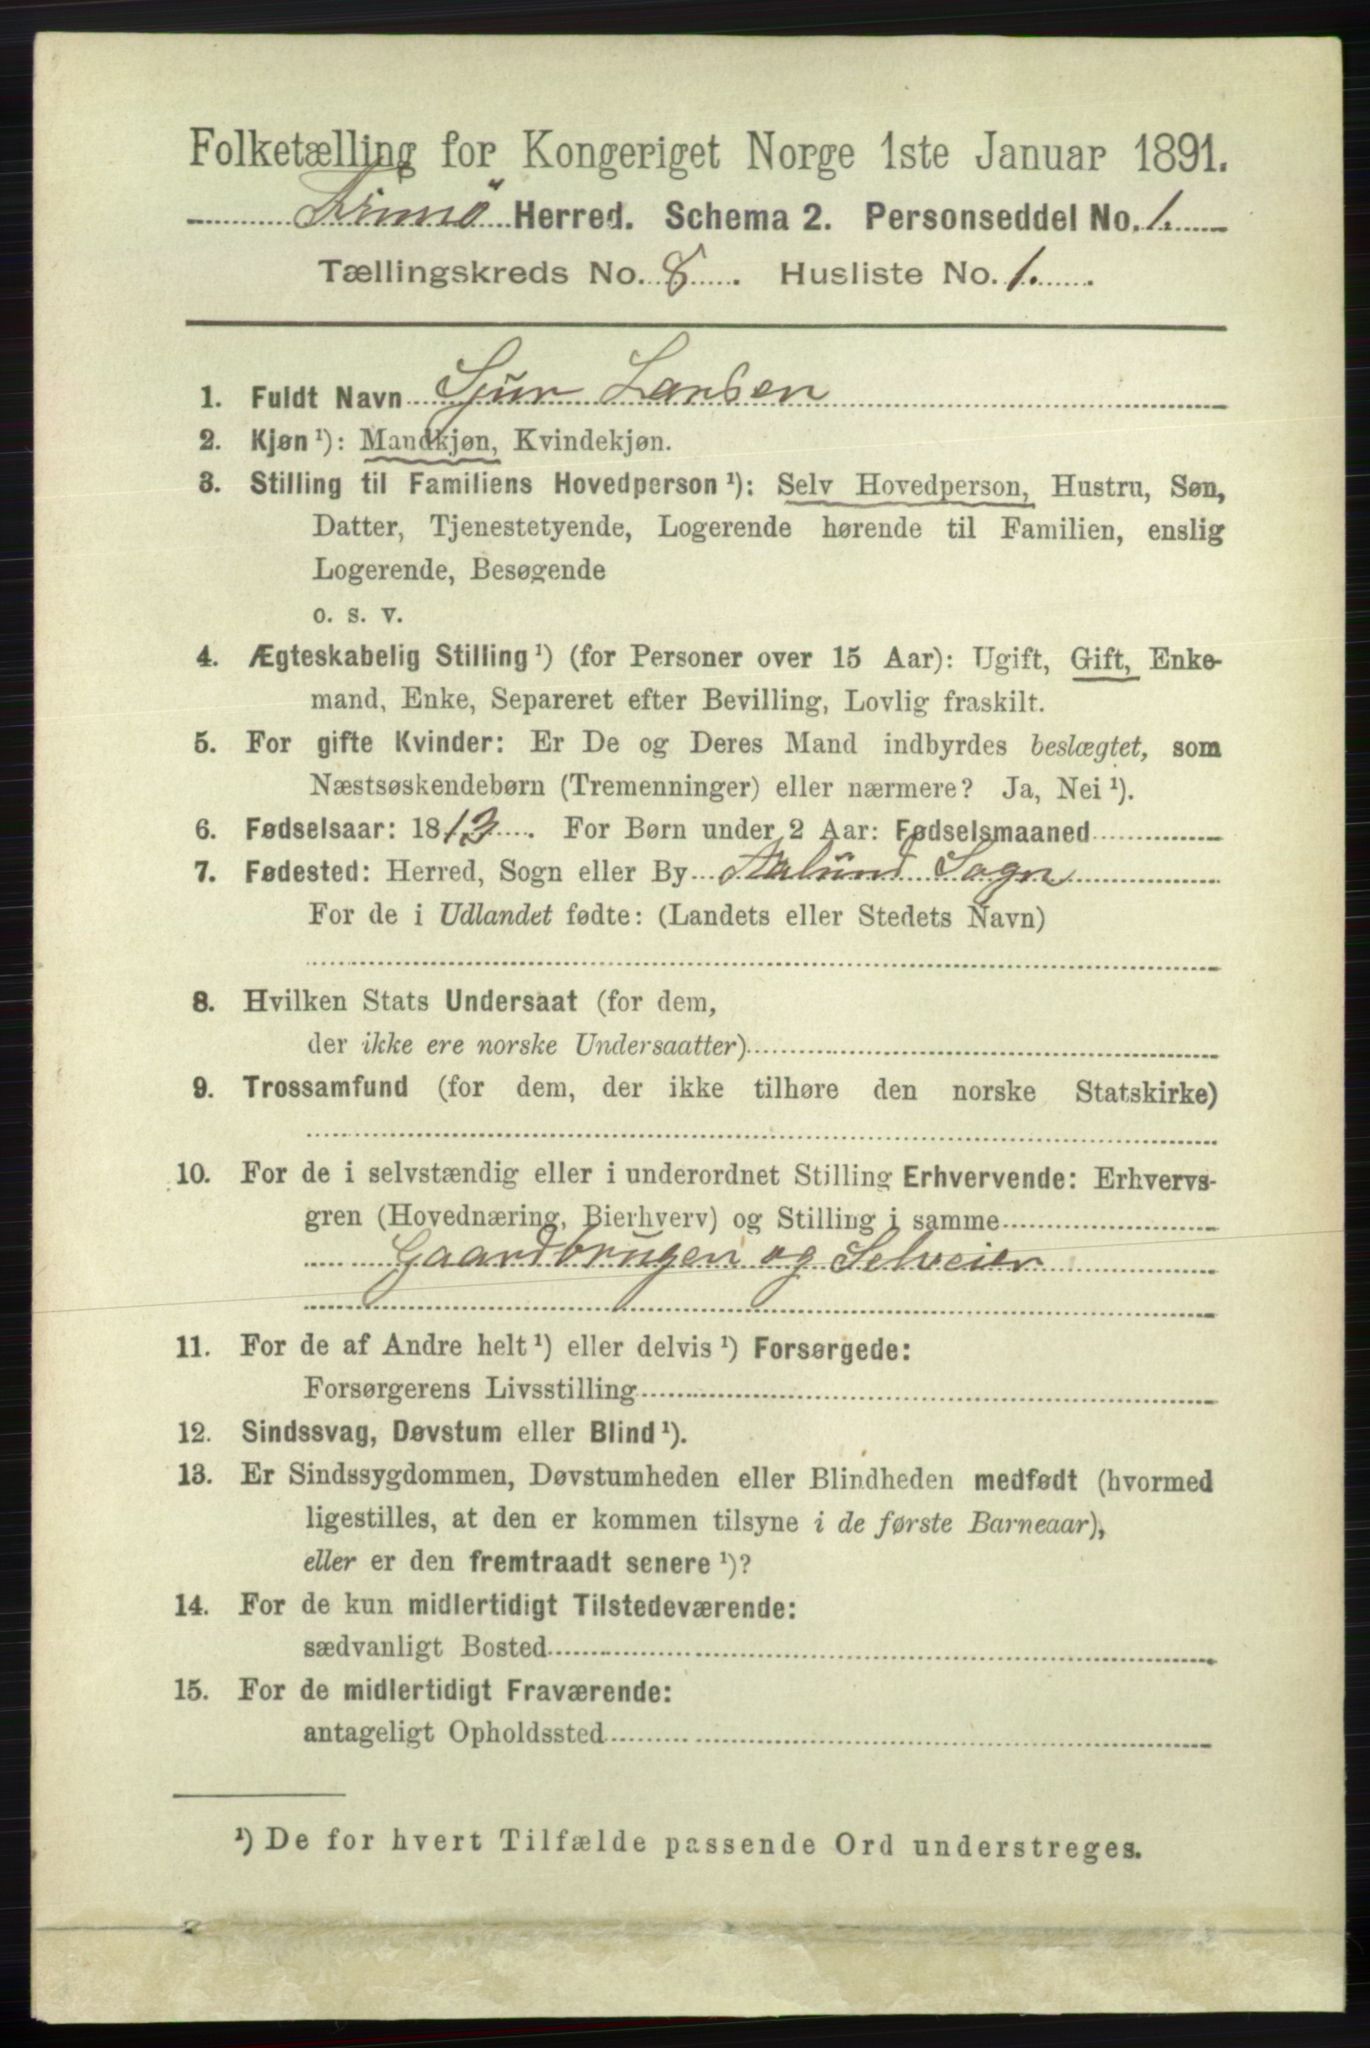 Folketælling for Kongeriget Norge 1ste Januar 1891.
Finnö Herred. Schema 2. Personseddel No. 1.
Tællingskreds No. 8. Husliste No. 1.
1. Fuldt Navn Sjur Larsen
2. Kjøn ¹): Mandkjøn, Kvindekjøn.
3. Stilling til Familiens Hovedperson ¹): Selv Hovedperson, Hustru, Søn,
Datter, Tjenestetyende, Logerende hørende til Familien, enslig
Logerende, Besøgende
o. s. v.
4. Ægteskabelig Stilling ¹) (for Personer over 15 Aar): Ugift, Gift, Enke-
mand, Enke, Separeret efter Bevilling, Lovlig fraskilt.
5. For gifte Kvinder: Er De og Deres Mand indbyrdes beslægtet, som
Næstsøskendebørn (Tremenninger) eller nærmere? Ja, Nei ¹).
6. Fødselsaar: 1813. For Børn under 2 Aar: Fødselsmaaned
7. Fødested: Herred, Sogn eller By Sogn
For de i Udlandet fødte: (Landets eller Stedets Navn)
8. Hvilken Stats Undersaat (for dem,
der ikke ere norske Undersaatter)
9. Trossamfund (for dem, der ikke tilhøre den norske Statskirke)
10. For de i selvstændig eller i underordnet Stilling Erhvervende: Erhvervs-
gren (Hovednæring, Bierhverv) og Stilling i samme
Gaardbrugen og Selveier
11. For de af Andre helt ¹) eller delvis ¹) Forsørgede:
Forsørgerens Livsstilling
12. Sindssvag, Døvstum eller Blind ¹).
13. Er Sindssygdommen, Døvstumheden eller Blindheden medfødt (hvormed
ligestilles, at den er kommen tilsyne i de første Barneaar),
eller er den fremtraadt senere ¹)?
14. For de kun midlertidigt Tilstedeværende:
sædvanligt Bosted
15. For de midlertidigt Fraværende:
antageligt Opholdssted
¹) De for hvert Tilfælde passende Ord understreges.